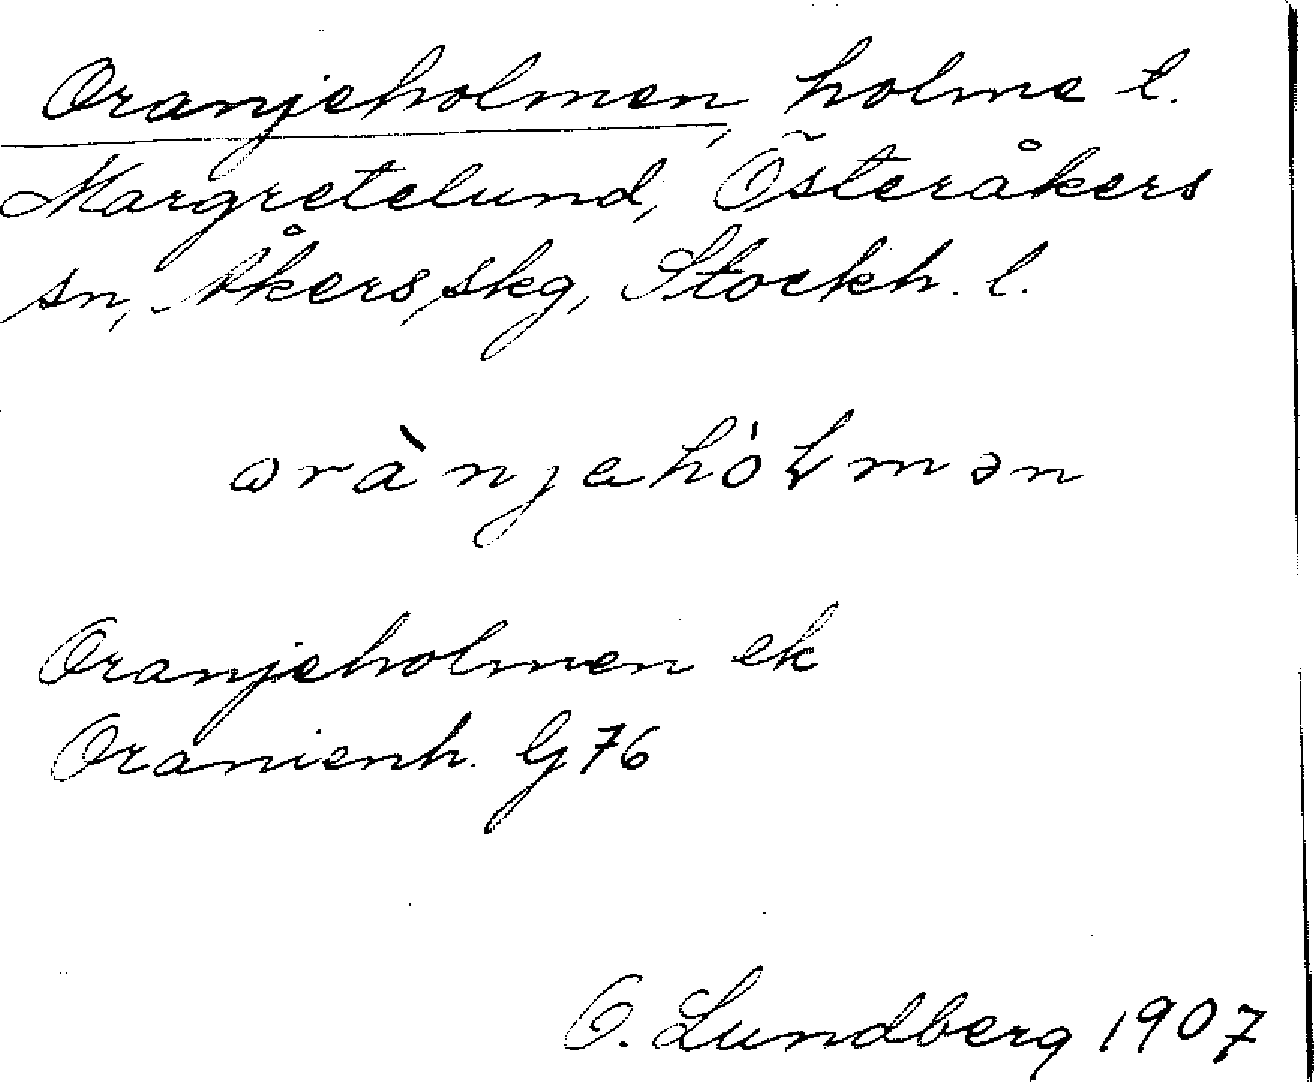 Oranjeholmen, holme t.
Margretelund, Österåkers
sn, Åkers skg, Stockh. l.
orànjehóɫmən
Oranjeholmen ek
Oranienh. G 76
O. Lundberg 1907